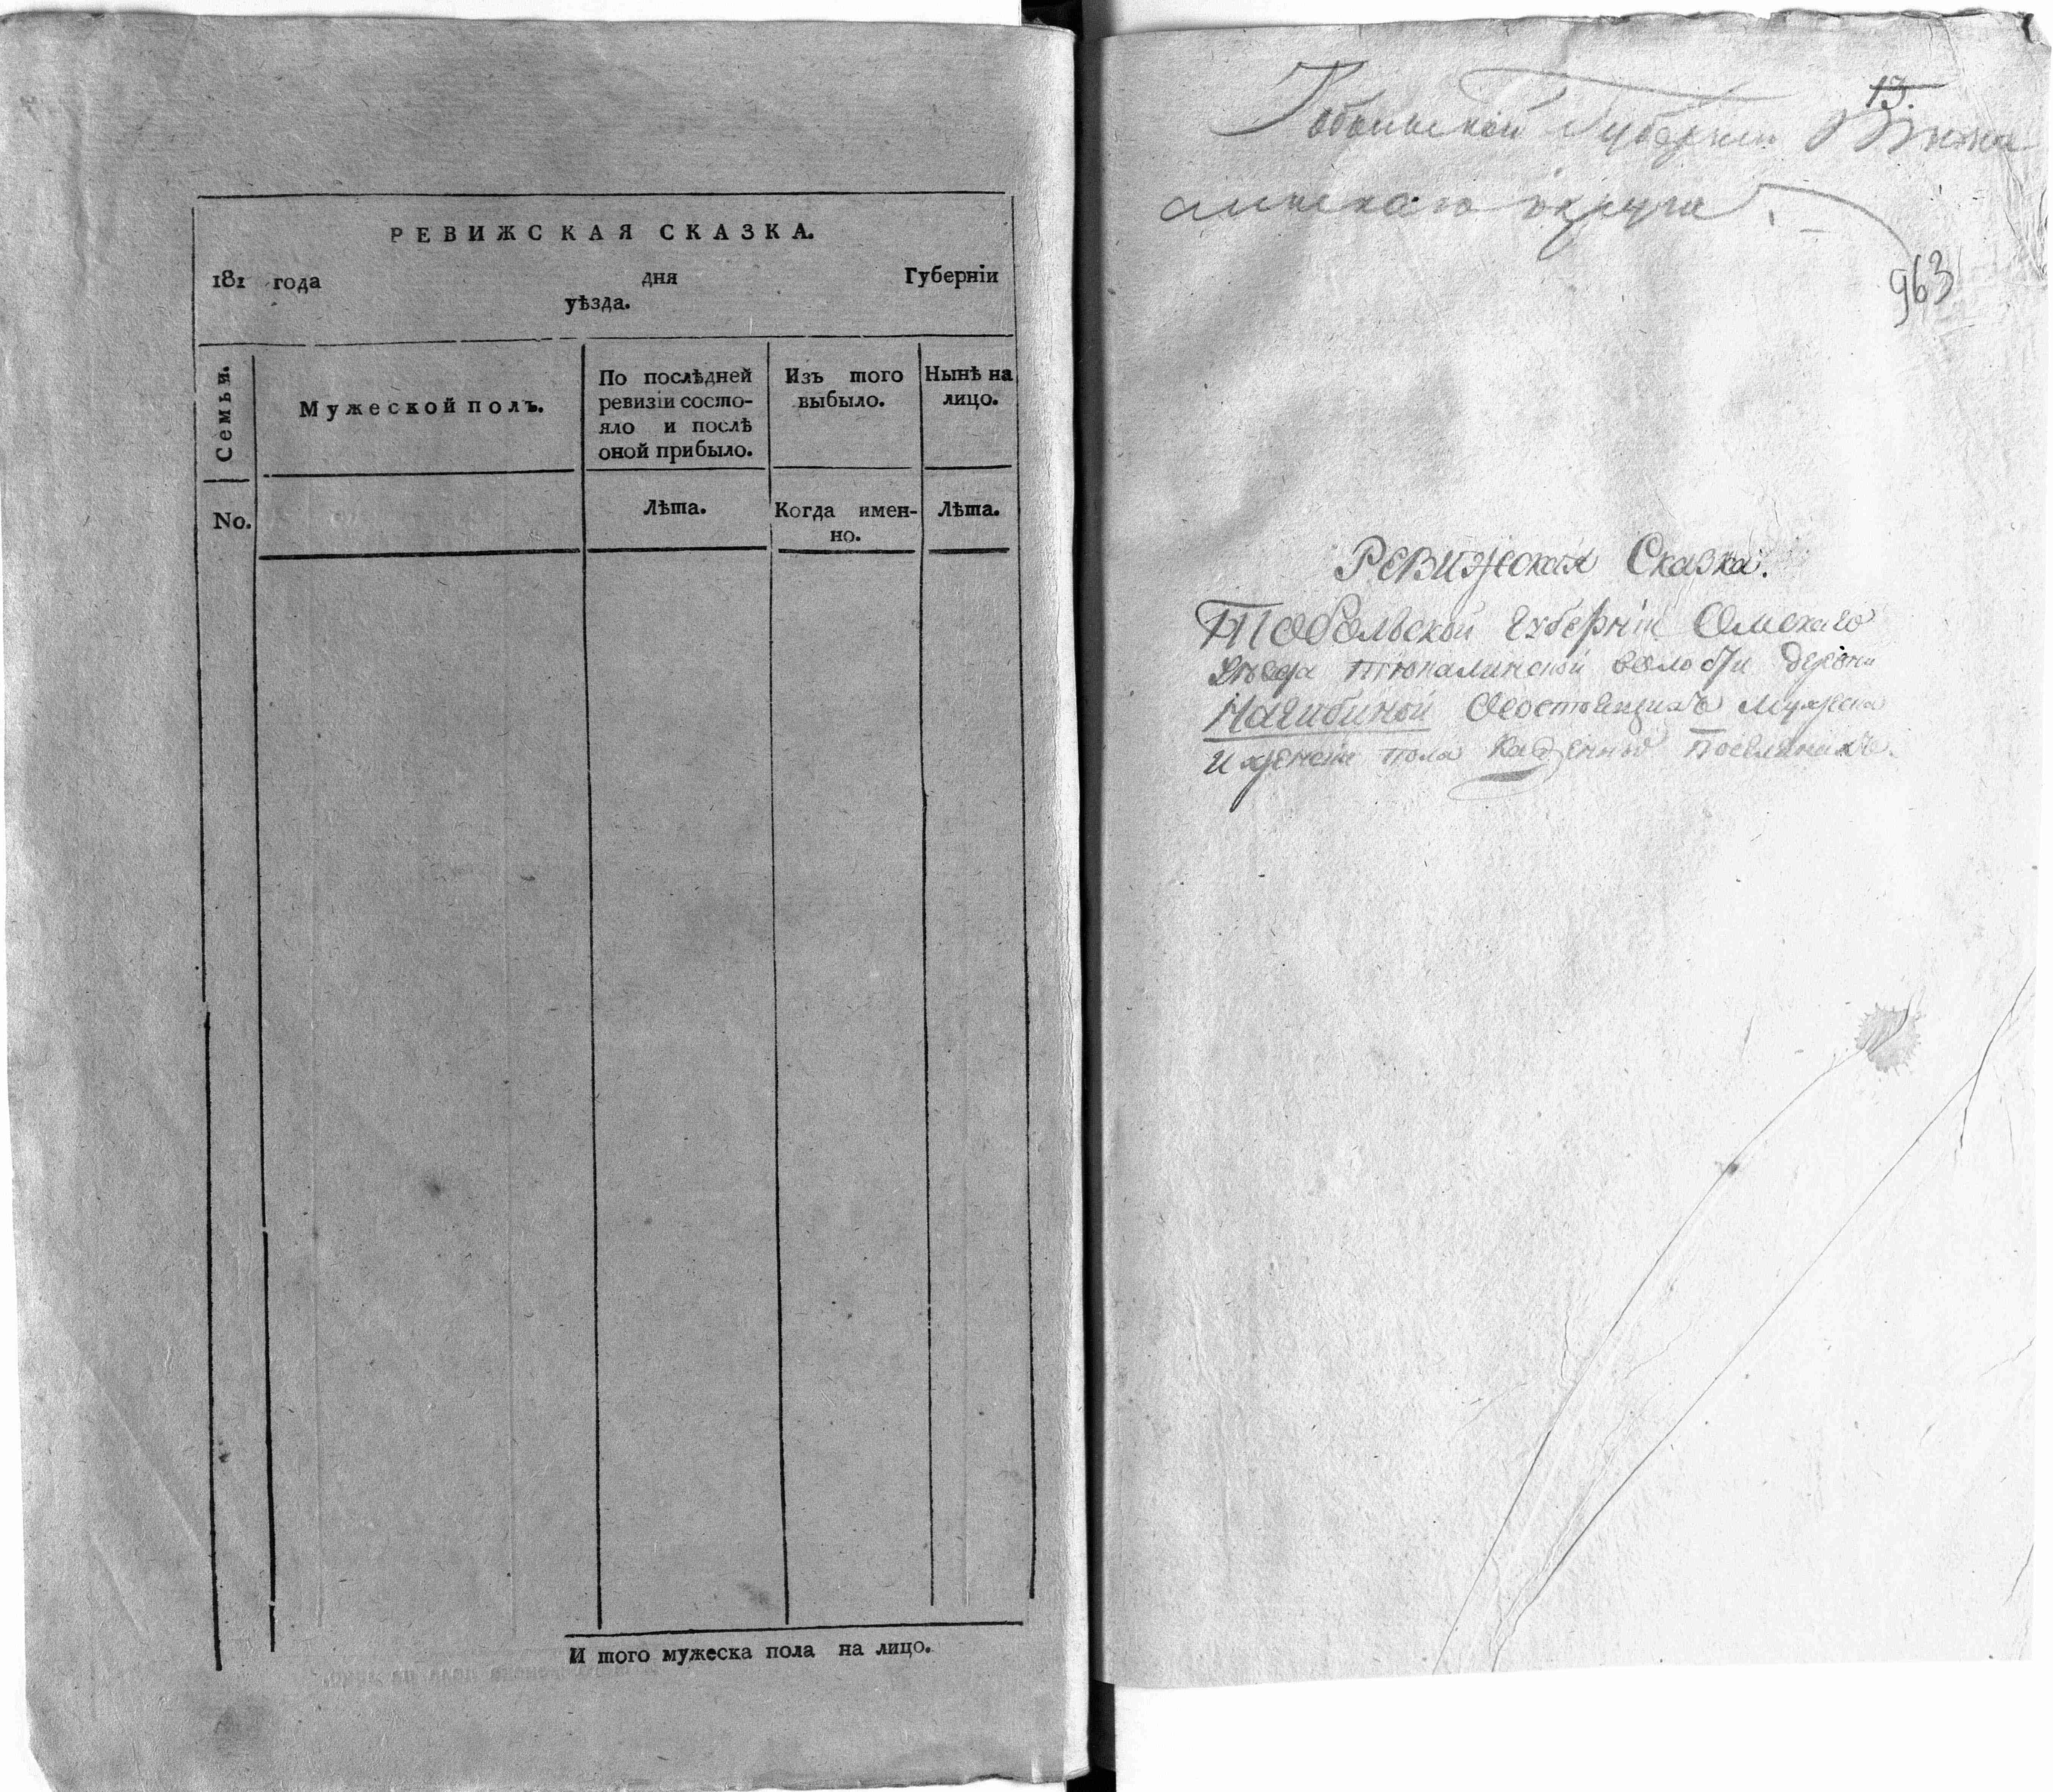 РЕВИЖСКАЯ СКАЗКА.
181 года дня Губерніи
уѣзда.
Семьи.
Мужеской полъ.
По послѣдней
ревизіи состо-
яло и послѣ
оной прибыло.
Изъ того
выбыло.
Нынѣ на
лицо.
No.
Лѣта.
Когда имен-
но.
Лѣта.
И того мужеска пола на лицо.
13.
Тобольской Губерніи Тюка
линскаго округа.
963
Ревижская Сказка.
Тобольской губерніи Омскаго
Уѣзда Тюкалинской волости деревни
Нагибиной Осостоящихъ мужеска
и женска пола казенныхъ поселянахъ.